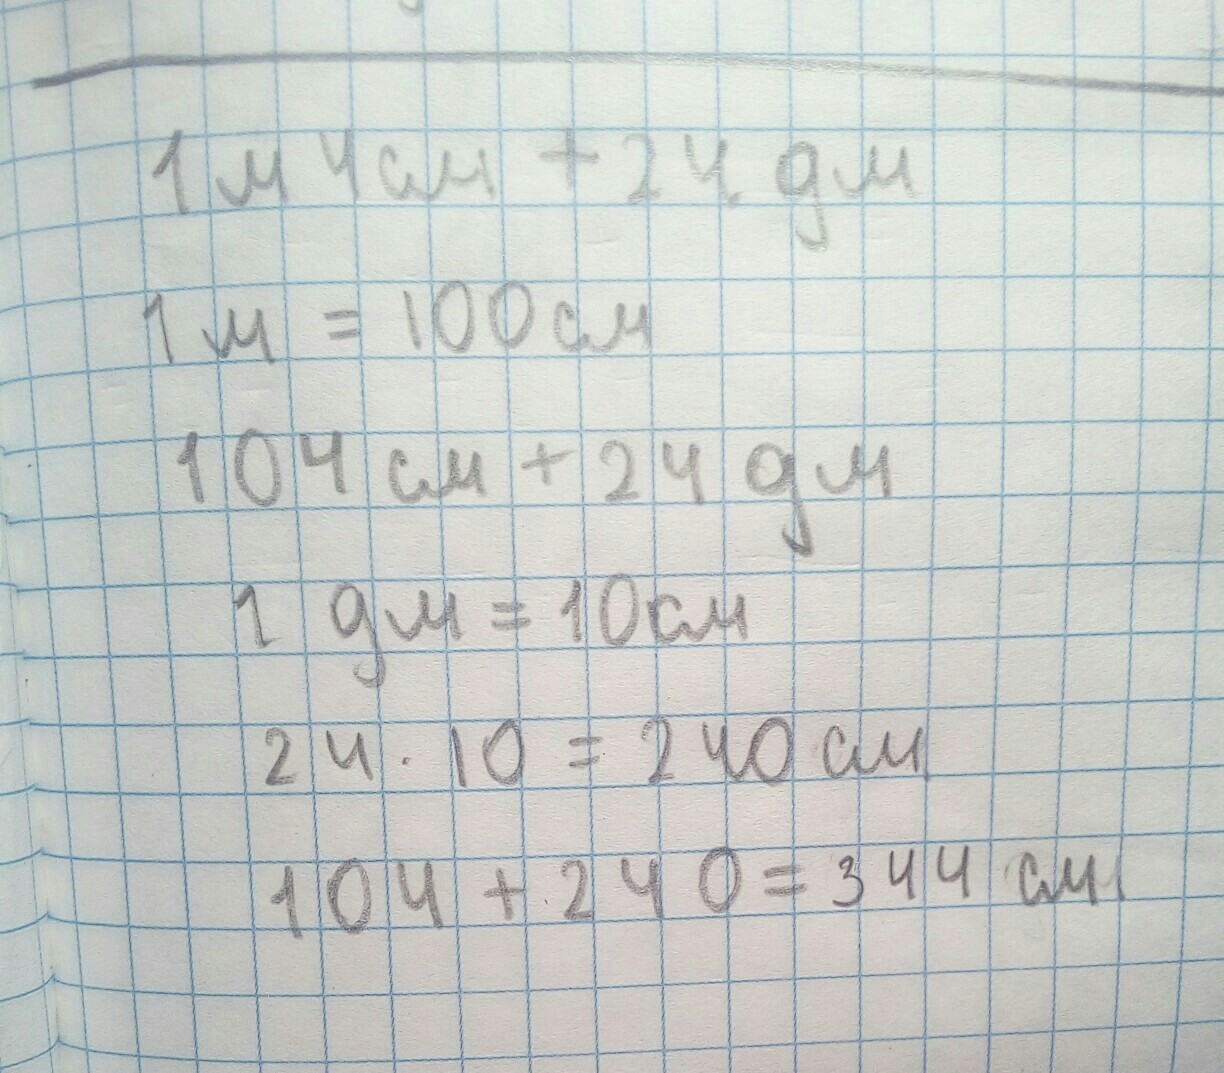 1 м 4 см + 24 дм
1 м = 100 см
104 см + 24 дм
1 дм = 10 см
24 · 10 = 240 см
104 + 240 = 344 см